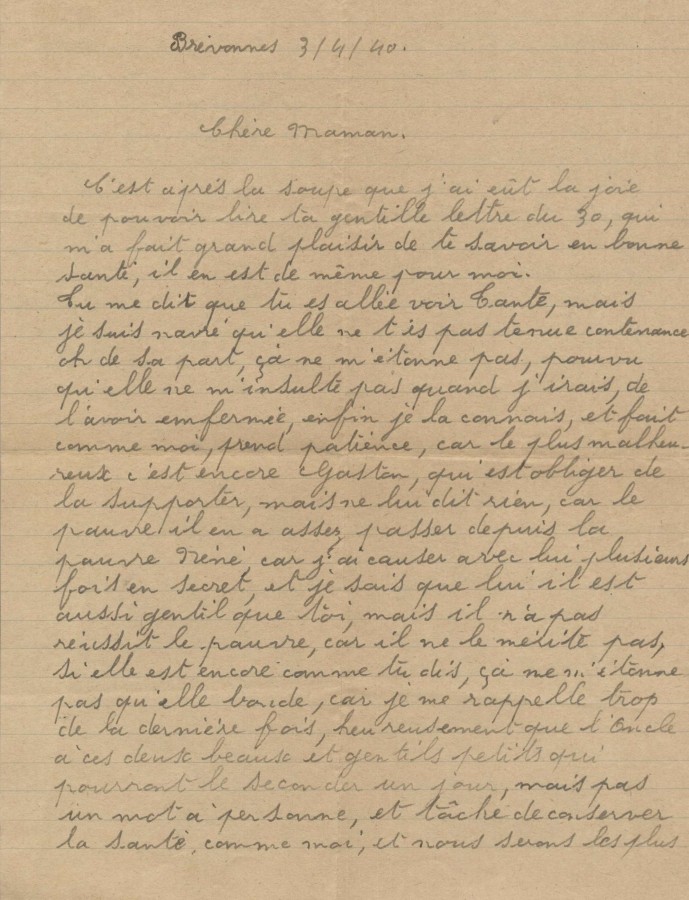 Brévonnes 3/4/40.
Chère Maman.
C'est après la soupe que j'ai eût la joie
de pouvoir lire ta gentille lettre du 30, qui
m'a fait grand plaisir de te savoir en bonne
santé, il en est de même pour moi.
Tu me dit que tu es allée voir Tante, mais
je suis navré qu'elle ne t'es pas tenue contenance
oh de sa part, çà ne m'étonne pas, pourvu
qu'elle ne m'insulte pas quand j'irais, de
l'avoir emfermée, enfin je la connais, et fait
comme moi, prend patience, car le plus malheu-
reux c'est encore Gaston, qui est obliger de
la supporter, mais ne lui dit rien, car le
pauvre il en a assez passer depuis la
pauvre Néné, car j'ai causer avec lui plusieurs
fois en secret, et je sais que lui il est
aussi gentil que toi, mais il n'a pas
réussit le pauvre, car il ne le mérite pas,
si elle est encore comme tu dis, çà ne m'étonne
pas qu'elle boude, car je me rappelle trop
de la dernière fois, heureusement que l'Oncle
à ces deux beaux et gentils petits qui
pourront le seconder un jour, mais pas
un mot à personne, et tâche de conserver
la santé, comme moi, et nous serons les plus